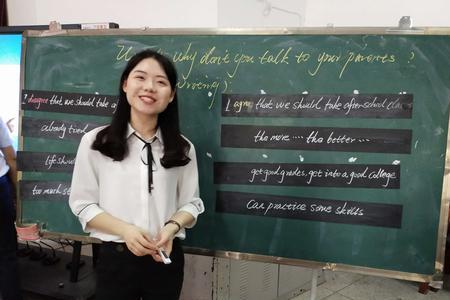 why don't you talk to your parents ?
I disagree that we should take
I agree that we should take after-school classes
already tired
the more .... the better ...
life should
got good grades, got into a good college
too much st
Can practice some skills